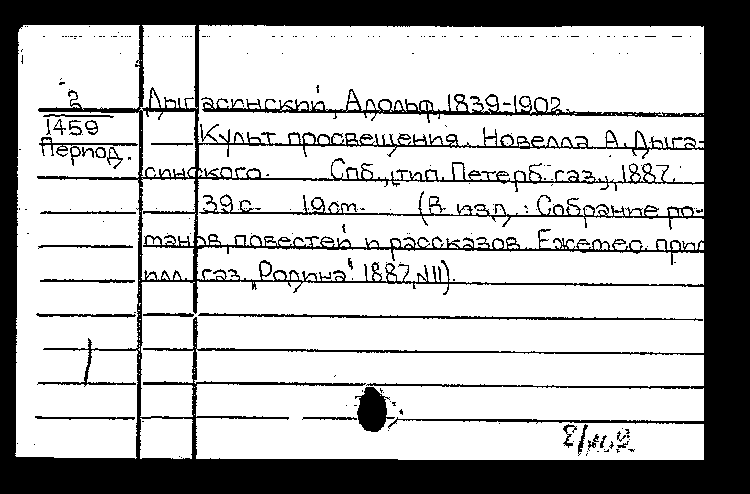 2
Дыгасинский, Адольф, 1839-1902.
1459
Культ просвещения. Новелла А. Дыга-
Период.
синского. Спб., тип. Петерб. газ., 1887.
39 с. 19 см. (В изд.: Собрание ро-
манов, повестей и рассказов. Ежемес. прил
илл. газ. „Родина“. 1887, № 11).